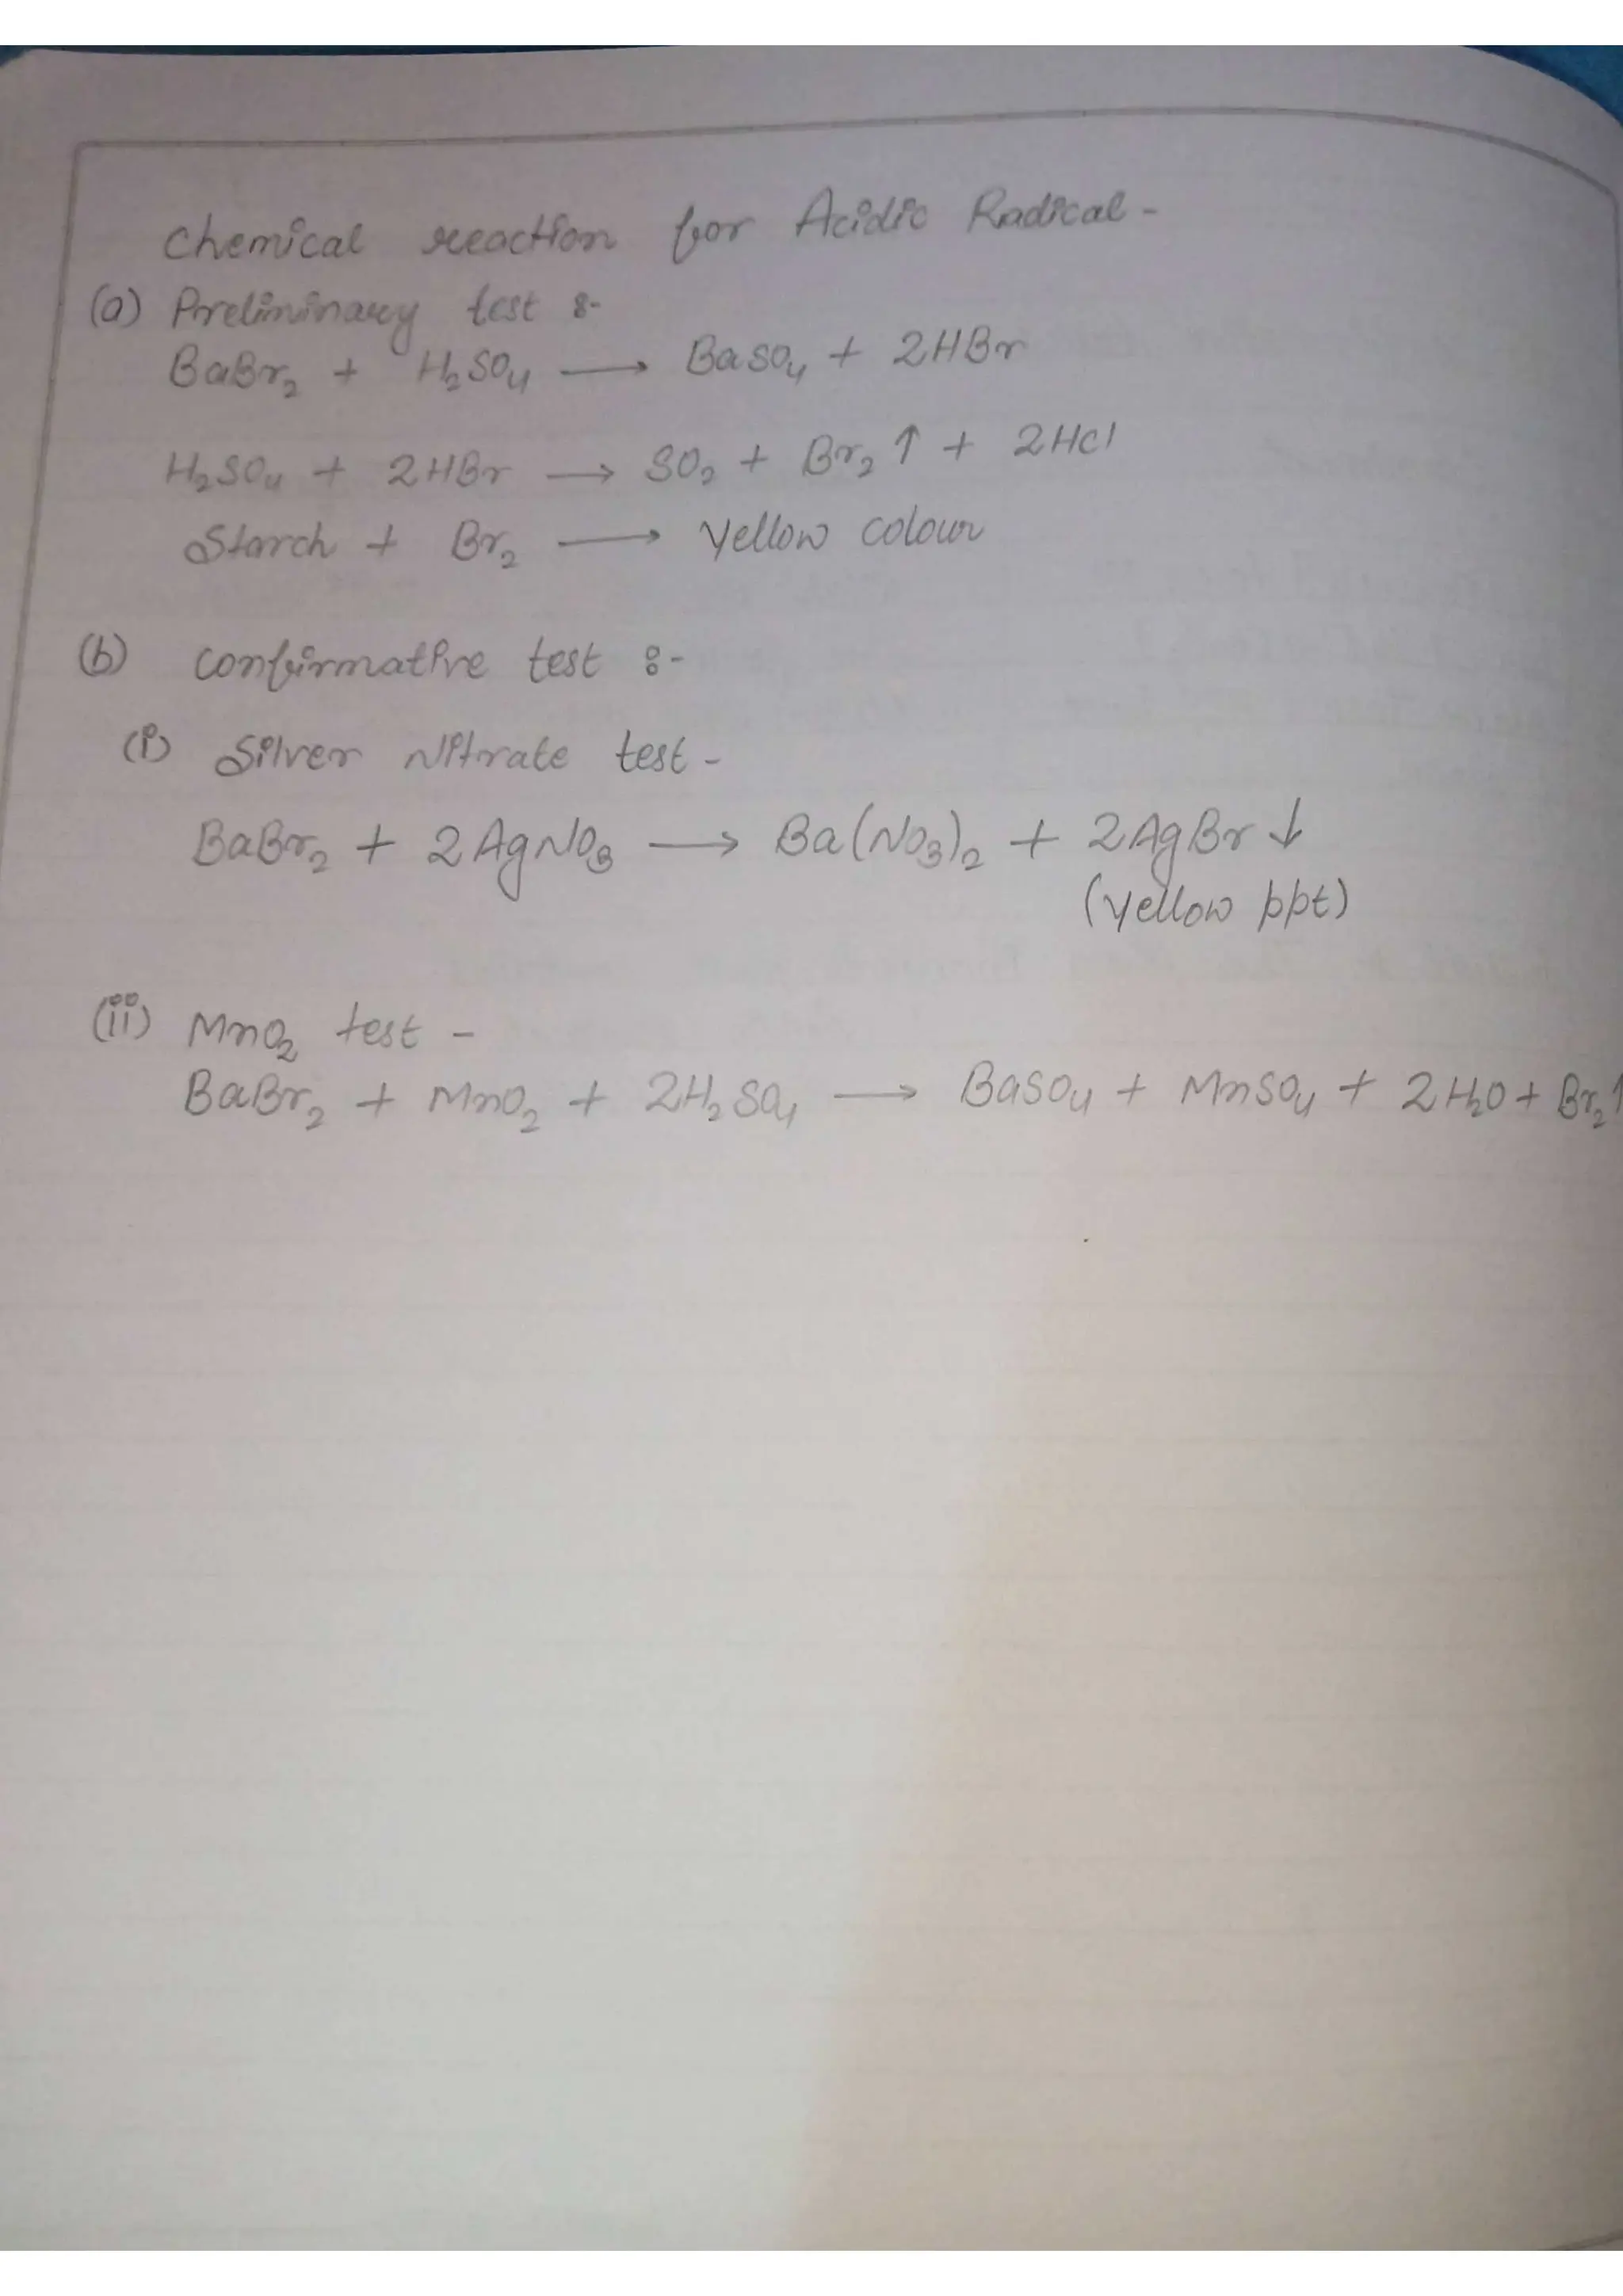 Chemical reaction for Acidic Radical -
(a) Preliminary test :-
BaBr₂ + H₂SO₄ ⟶ BaSO₄ + 2HBr
H₂SO₄ + 2HBr ⟶ SO₂ + Br₂ ↑ + 2HCl
Starch + Br₂ ⟶ Yellow colour
(b) Confirmative test :-
(i) Silver Nitrate test -
BaBr₂ + 2AgNO₃ ⟶ Ba(NO₃)₂ + 2AgBr ↓
(Yellow ppt)
(ii) MnO₂ test -
BaBr₂ + MnO₂ + 2H₂SO₄ ⟶ BaSO₄ + MnSO₄ + 2H₂O + Br₂ ↑